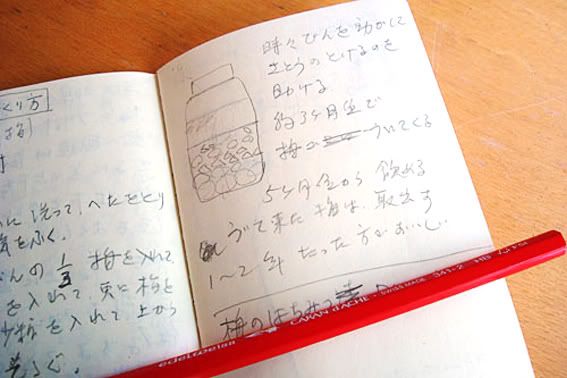 くり方
梅
に洗って、へたをとり
気をふく。
んの 1/3 梅を入れて
を入れて 更に梅を
砂糖を入れて 上から
時々びんを動かし
さとうのとけるのを
助ける
約3ヶ月位で
梅の ういてくる
5ヶ月位から 飲める
て来た梅は、取出す
1〜2年 たった方がおいし
梅のはちみつ
edelweiss CARAN D'ACHE - SWISS MADE 341-2 HB